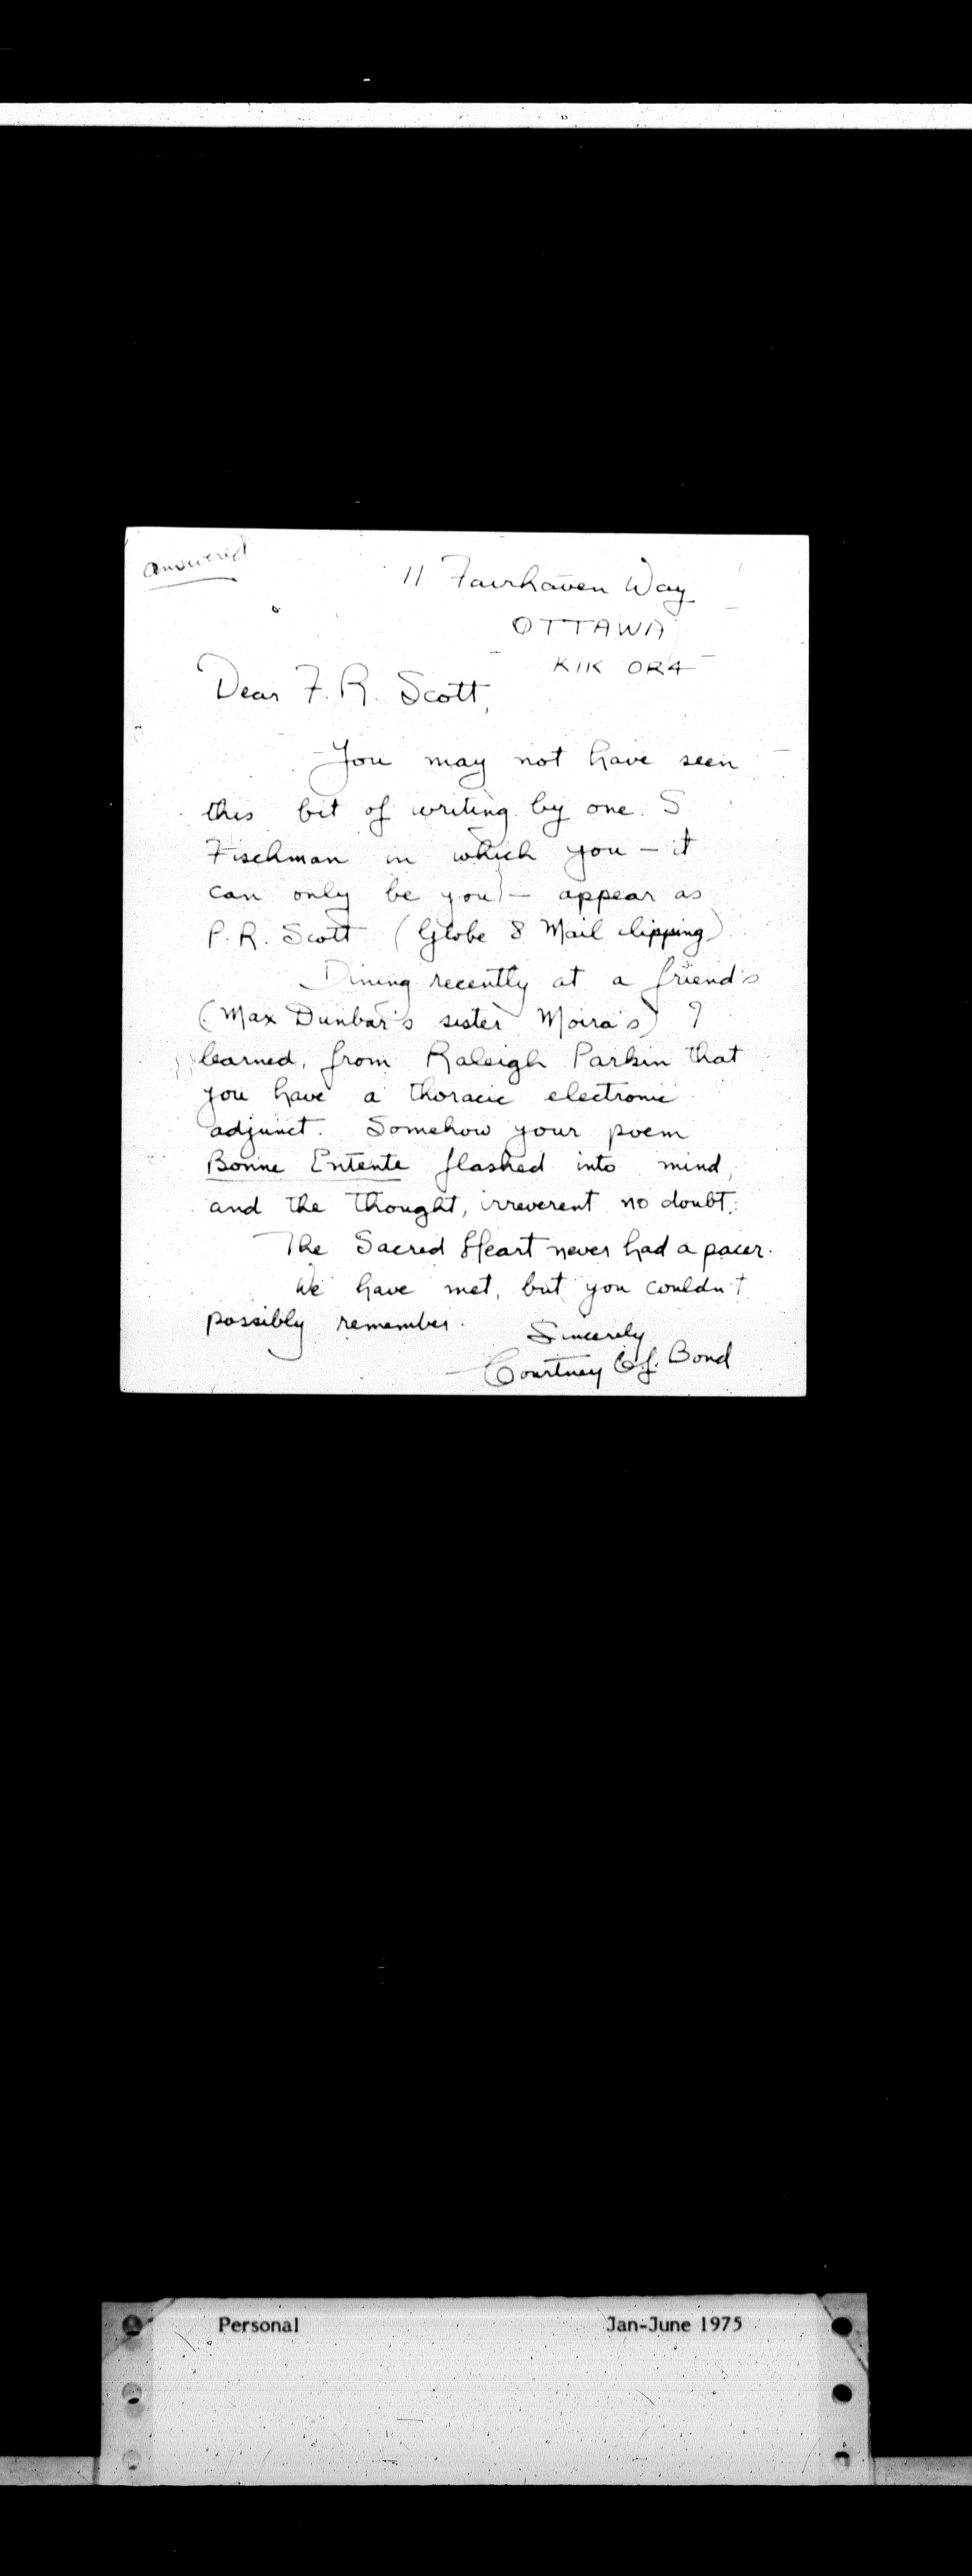 answered
11 Fairhaven Way
OTTAWA
K1K 0R4
Dear F. R. Scott,
You may not have seen
this bit of writing by one S
Fischman in which you – it
can only be you – appear as
P. R. Scott (Globe & Mail clipping)
Dining recently at a friend's
(Max Dunbar's sister Moira's) I
learned, from Raleigh Parkin that
you have a thoracic electronic
adjunct. Somehow your poem
Bonne Entente flashed into mind,
and the thought, irreverent no doubt:
The Sacred Heart never had a pacer.
We have met, but you couldn't
possibly remember.
Sincerely
Courtney C.J. Bond
Personal Jan-June 1975